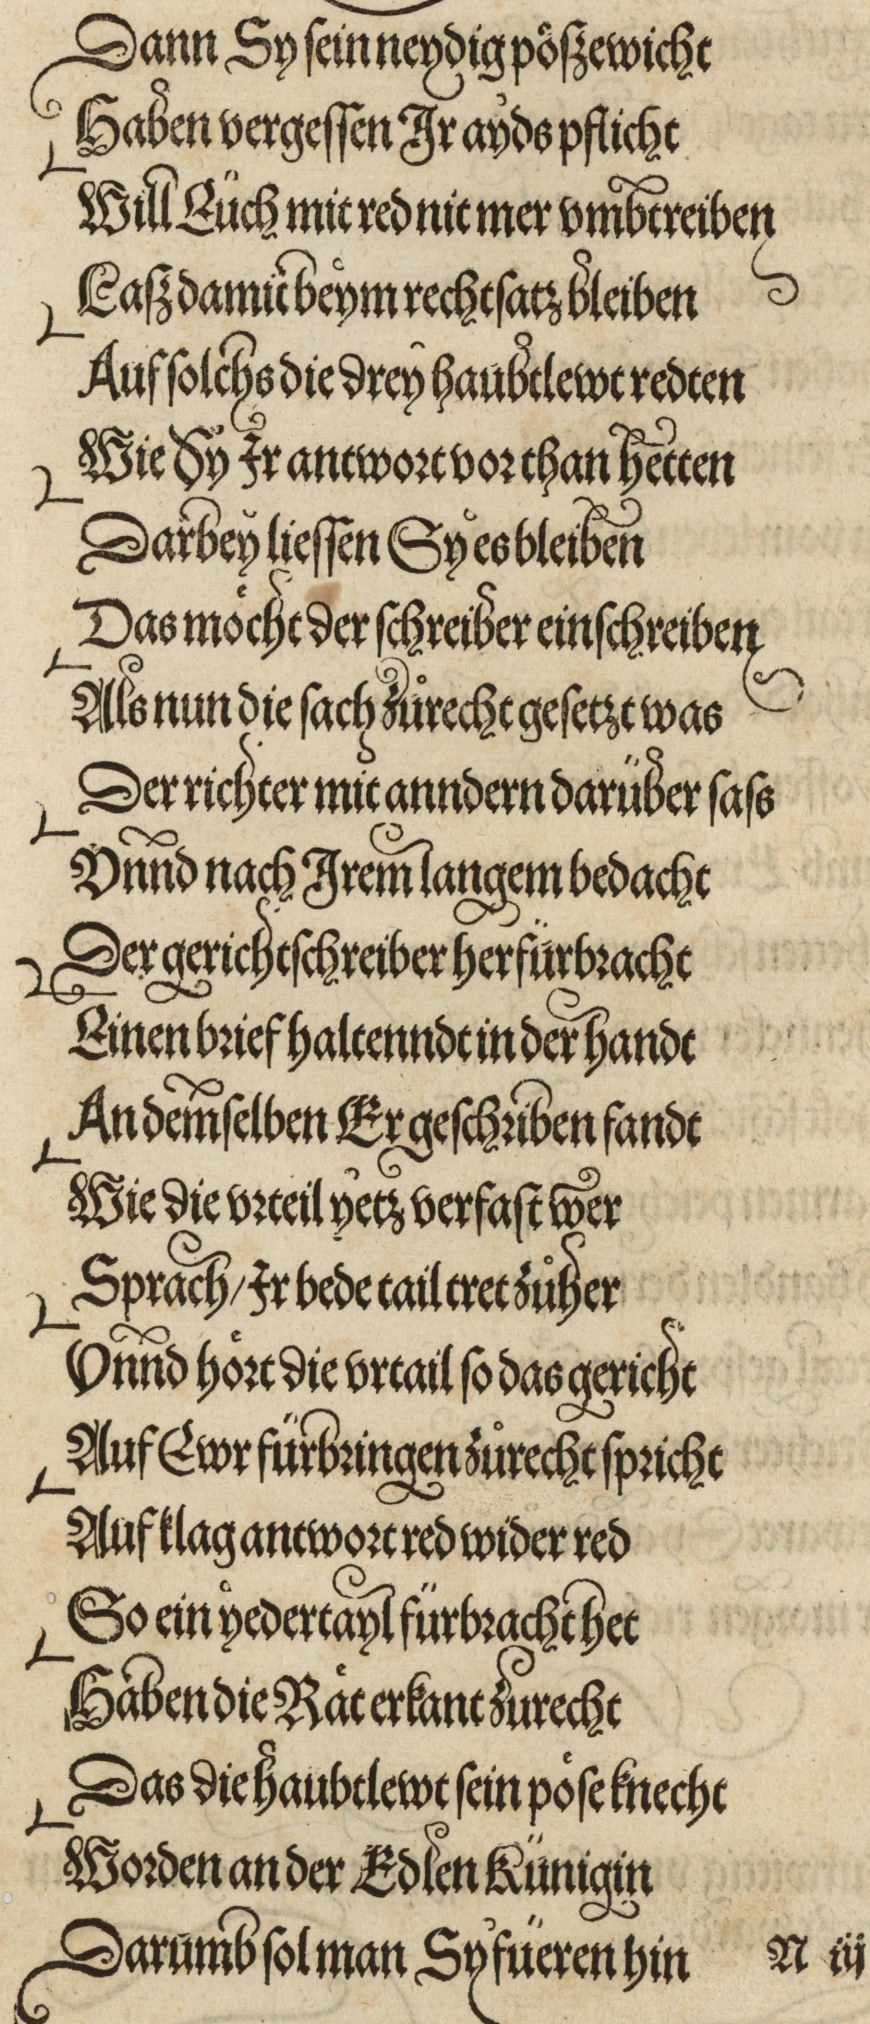 Dann Sy sein neydig pößzewicht
Haben vergessen Ir ayds pflicht
Will Eüch mit red nit mer vmbtreiben
Laß damit beym rechtsatz bleiben
Auf solchs die drey haubtlewt redten
Wie Sy Ir antwort vor than hetten
Darbey liessen Sy es bleiben
Das möcht der schreiber einschreiben
Als nun die sach zůrecht gesetzt was
Der richter mit anndern darüber sass
Vnnd nach Irem langem bedacht
Der gerichtschreiber herfürbracht
Einen brief haltenndt in der handt
An demselben Er geschriben fandt
Wie die vrteil yetz verfast wer
Sprach/ Ir bede tail tret zůher
Vnnd hört die vrtail so das gericht
Auf Ewr fürbringen zůrecht spricht
Auf klag antwort red wider red
So ein yeder tayl fürbracht het
Haben die Rät erkant zurecht
Das die haubtlewt sein pöse knecht
Worden an der Edlen Künigin
Darumb sol man Sy füeren hin N iij